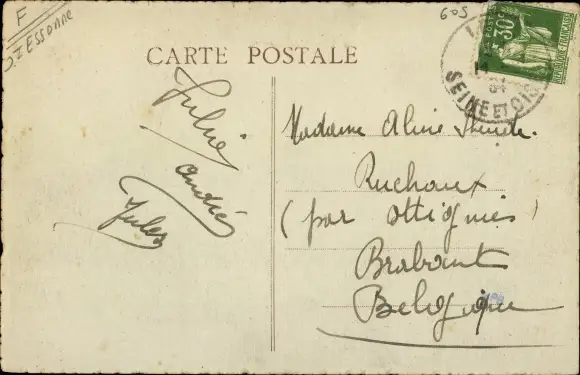 F
Essonne
605
CARTE POSTALE
30c
POSTES
REPUBLIQUE FRANÇAISE
SEINE ET OISE
Julie
André
Jules
Madame Aline
Ruchaux
(par Ottignies)
Brabant
Belgique